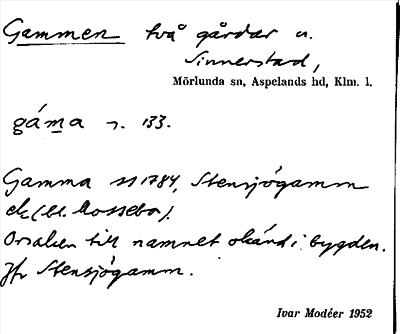 Gammen två gårdar u.
Sinnerstad,
Mörlunda sn, Aspelands hd, Klm. l.
gáma 133.
Gamma 1784, Stensjögamm
ek (bl. Mossebo).
Orsaken till namnet okänd i bygden.
Jfr Stensjögamm.
Ivar Modéer 1952